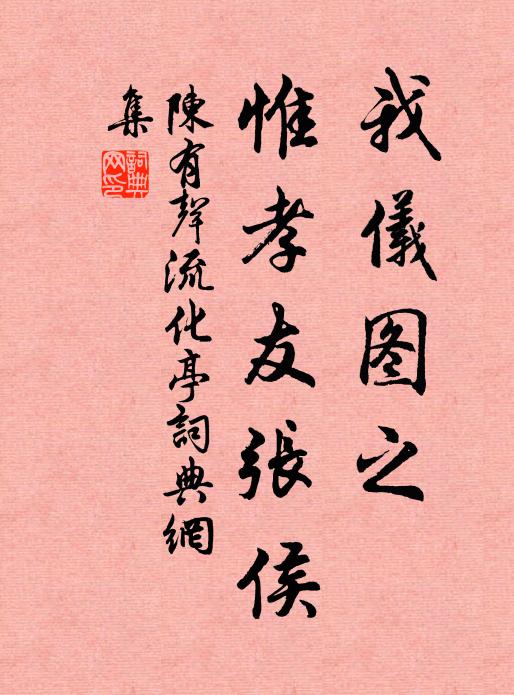 我儀图之
惟孝友張侯
陳有聲流化亭詞典網
集
詞典网印